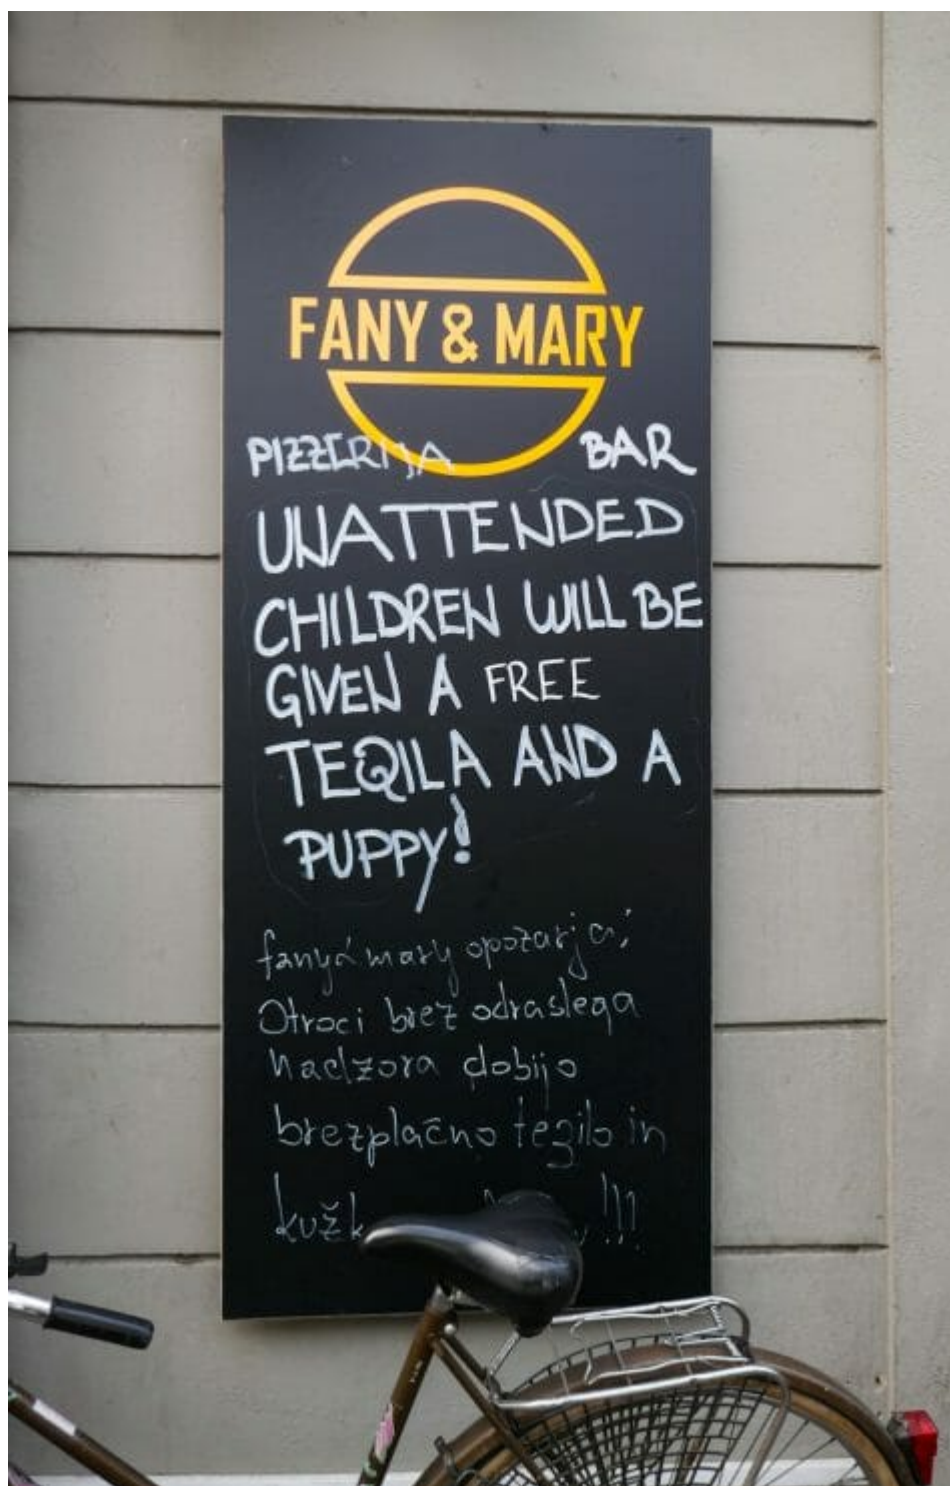 FANY & MARY
PIZZERIJA BAR
UNATTENDED
CHILDREN WILL BE
GIVEN A FREE
TEQILA AND A
PUPPY!
fany & mary opozarja:
Otroci brez odraslega
nadzora dobijo
brezplačno teqilo in
!!!